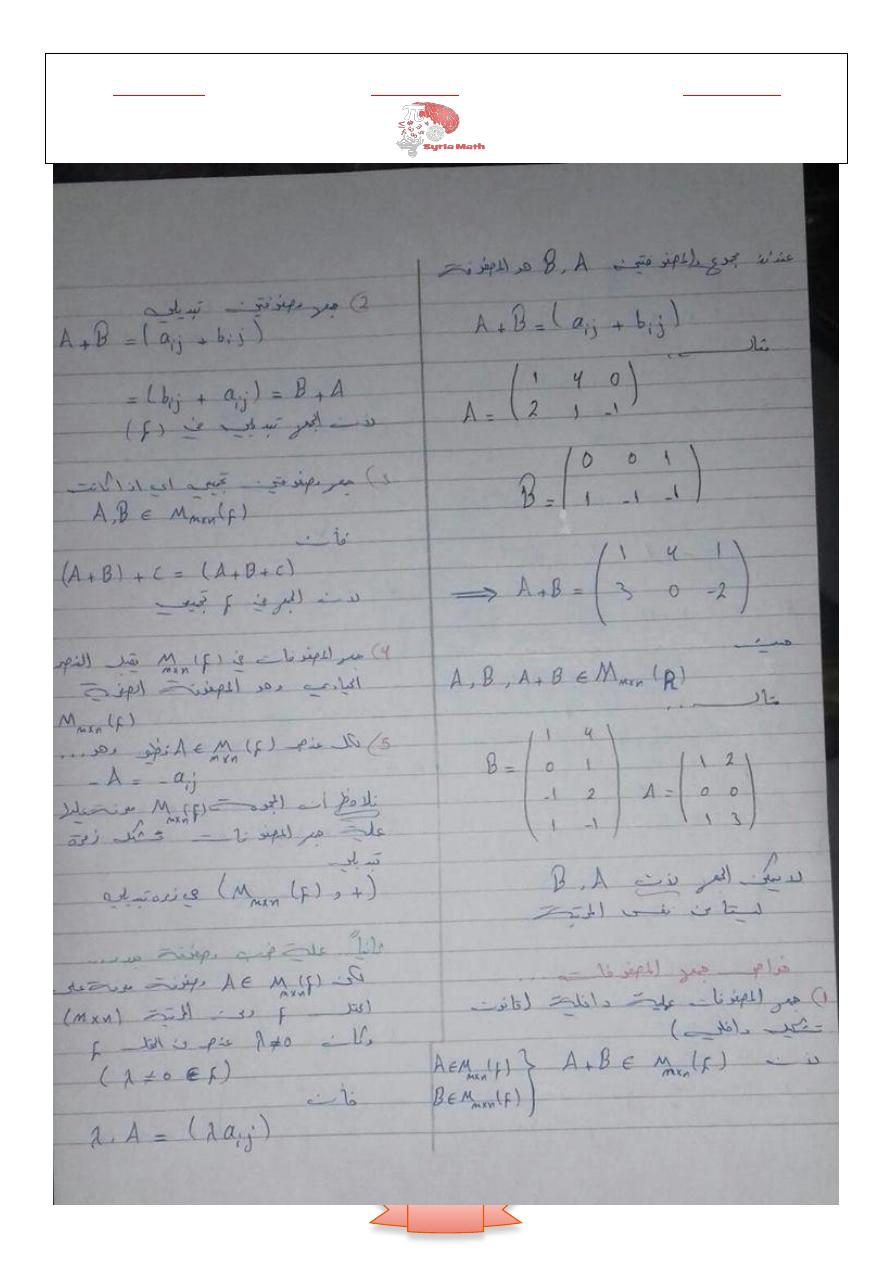 Syria Math
عندئذ مجموع المصفوفتين B, A هو المصفوفة
A+B = (a_ij + b_ij)
مثال ...
A = (1 4 0
2 1 -1)
B = (0 0 1
1 -1 -1)
⟹ A+B = (1 4 1
3 0 -2)
حيث
A, B, A+B ∈ M_m×n(R)
مثال ...
B = (1 4
0 1
-1 2
1 -1)
A = (1 2
0 0
1 3)
لا يمكن الجمع لأن B, A
ليستا من نفس المرتبة
خواص جمع المصفوفات ...
1) جمع المصفوفات عملية داخلية (قانون
تشكيل داخلي)
لأن A+B ∈ M_m×n(F) { A∈M_m×n(F)
B∈M_m×n(F)
2) جمع مصفوفتين تبديلي
A+B = (a_ij + b_ij)
= (b_ij + a_ij) = B+A
لأن الجمع تبديلي في (F)
3) جمع مصفوفتين تجميعي أي إذا كانت
A, B ∈ M_m×n(F)
فأن
(A+B) + C = (A+B+C)
لأن الجمع في F تجميعي
4) جمع المصفوفات في M_m×n(F) يقبل العنصر
الحيادي وهو المصفوفة الصفرية
M_m×n(F)
5) لكل عنصر A∈M_m×n(F) نظير وهو ...
-A = -a_ij
نلاحظ أن المجموعة M_m×n(F) مزودة
عملية جمع المصفوفات تشكل زمرة
تبديلية
(M_m×n(F) و +) هي زمرة تبديلية
ثانياً عملية ضرب مصفوفة ...
لتكن A∈M_m×n(F) مصفوفة معرفة على
الحقل F ومن المرتبة (m×n)
وكان λ≠0 عنصر من الحقل F
(λ≠0 ∈ F)
فأن
λ.A = (λa_ij)